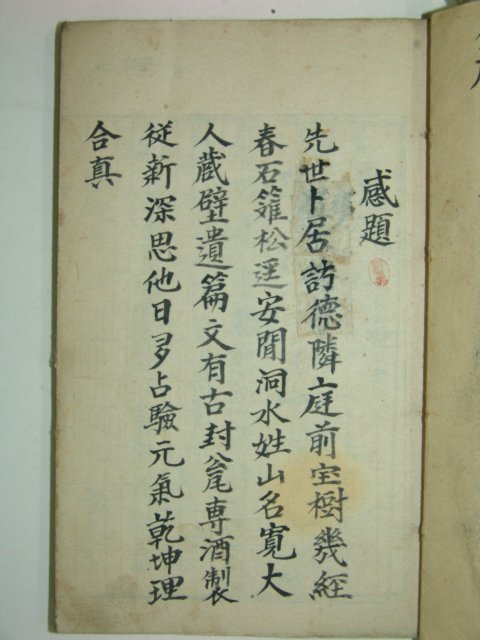 感題
先世卜居訪德隣庭前宝樹幾經
春石籬松逕安閒洞水姓山名寛大
人蔵壁遺篇文有古封瓮専酒製
従新深思他日多占驗元氣乾坤理
合真